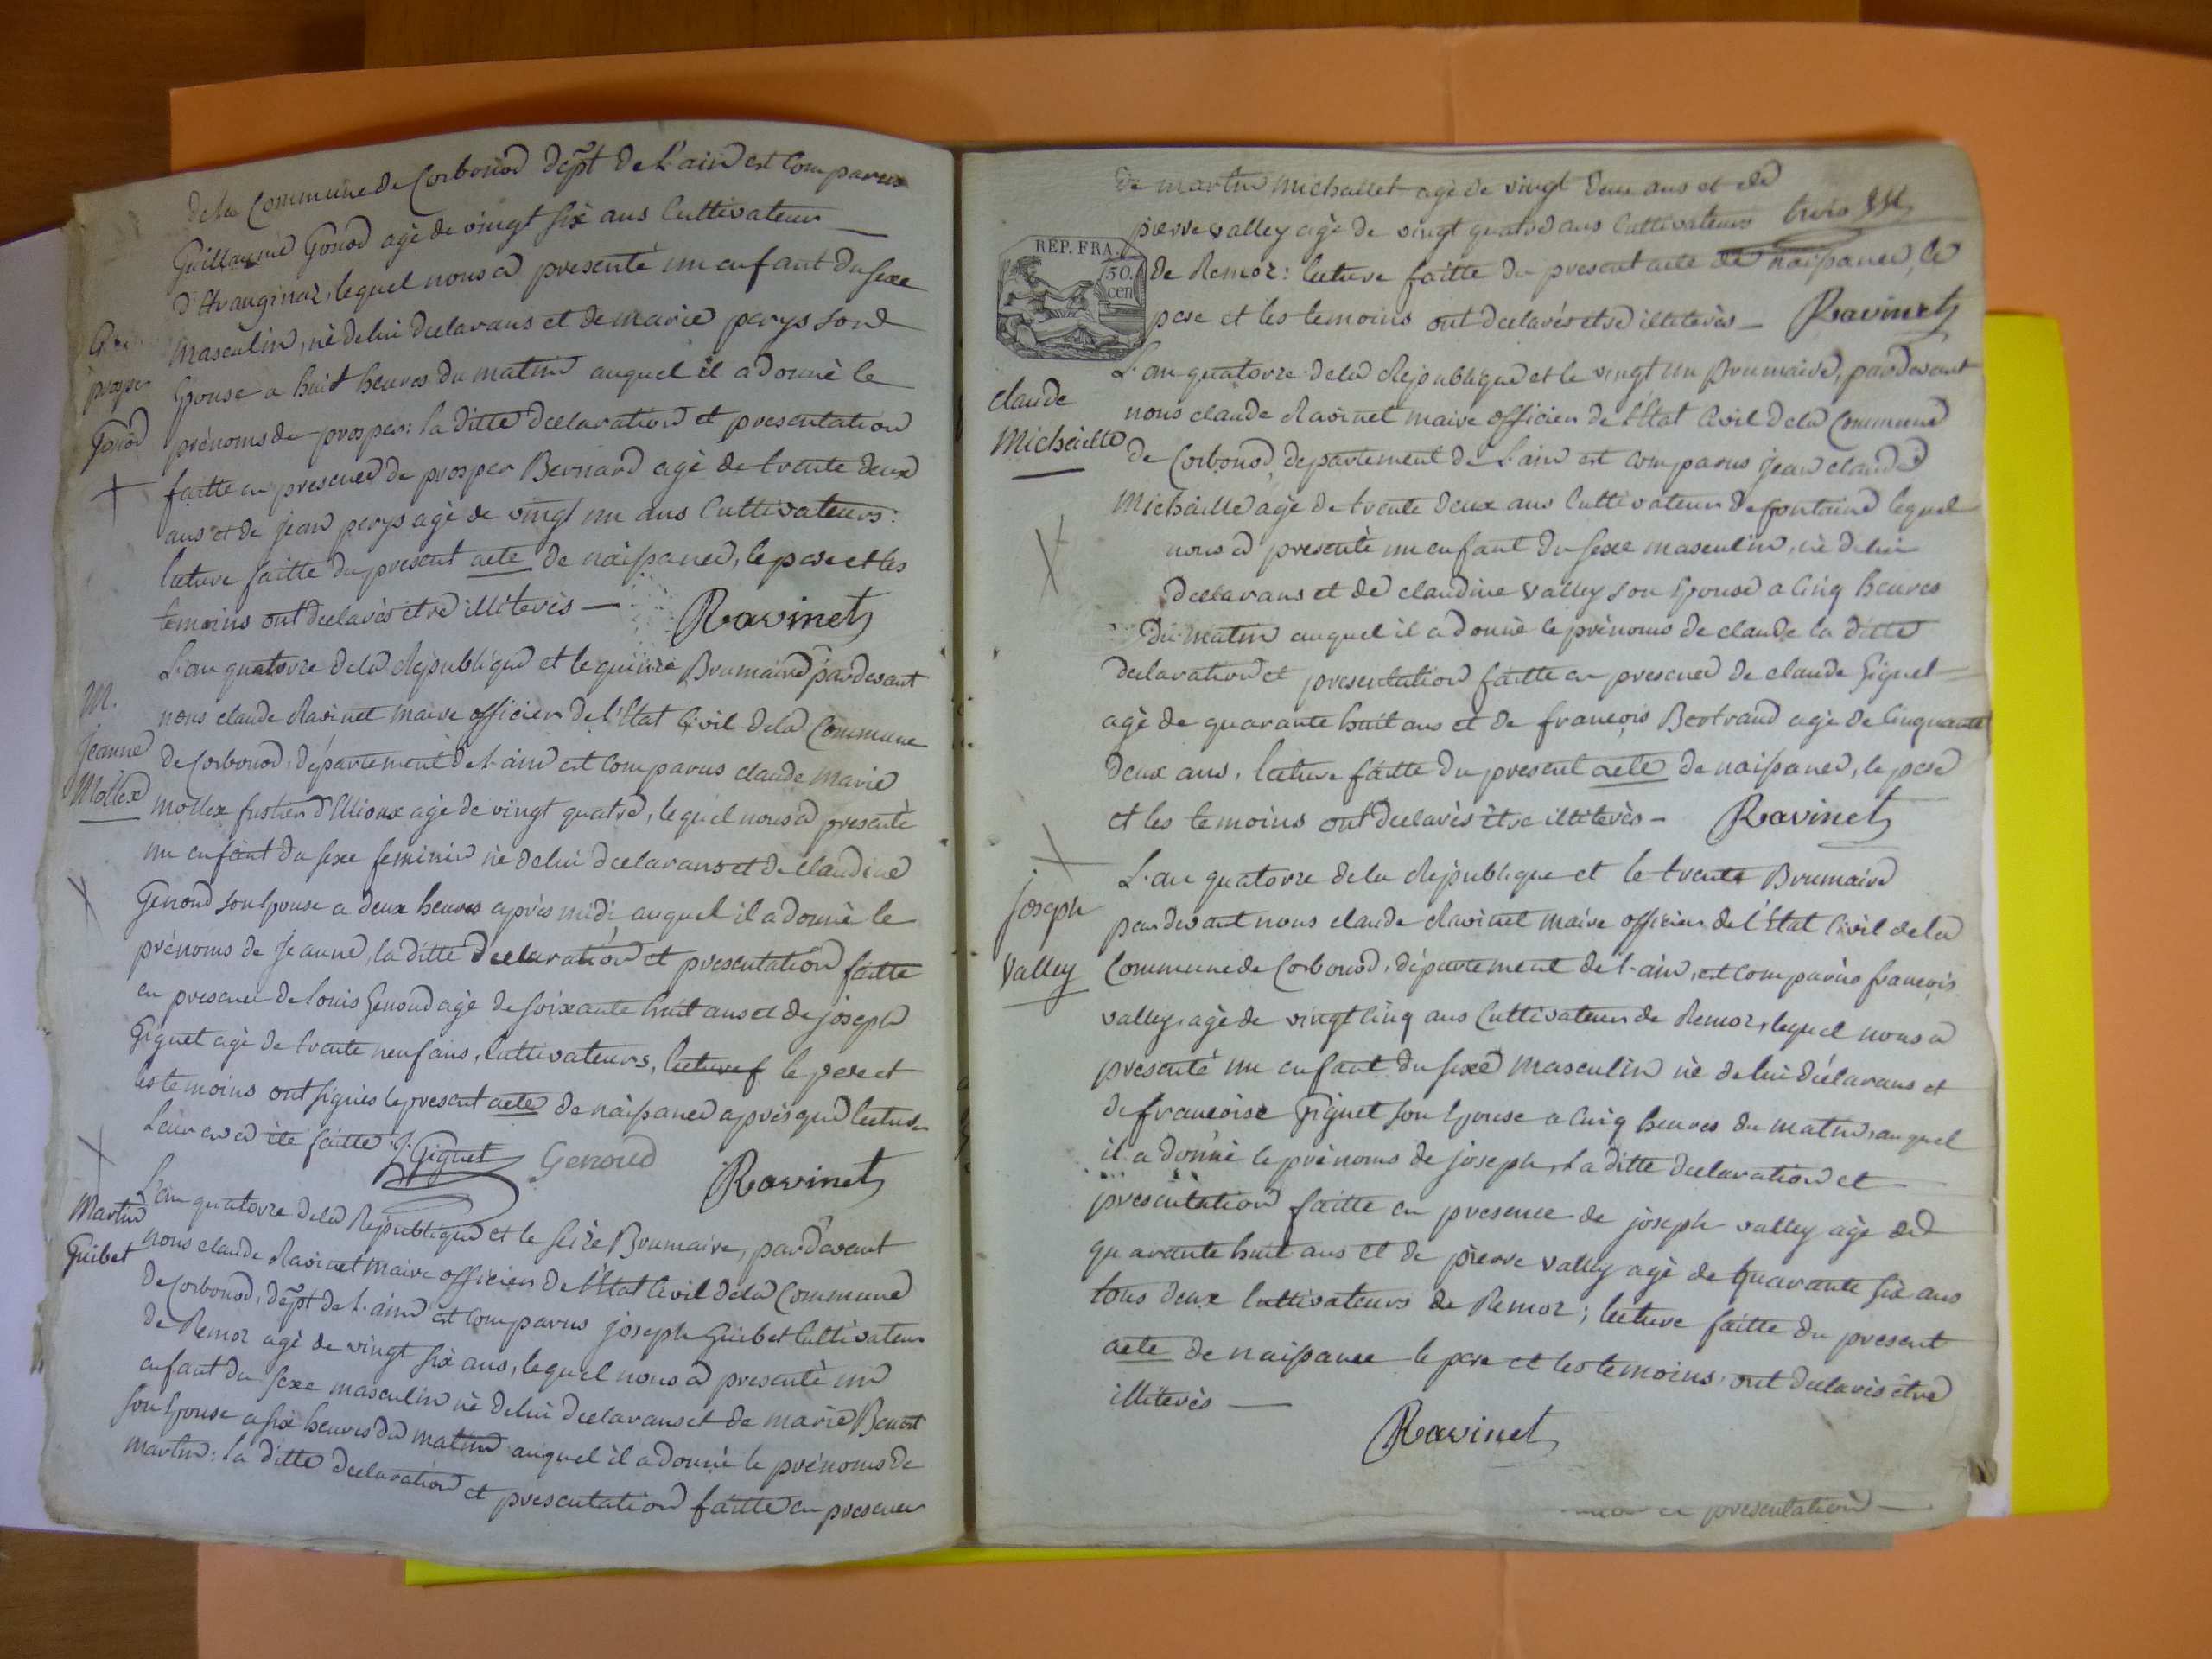 de la Commune de Corbonod dépt de l'ain est Comparus
Guillaume Gonod agè de vingt six ans Cultivateur
d'Etranginaz, lequel nous a presenté un enfant du sexe
masculin, nè de lui declarans et de marie perys son
Epouse a huit heures du matin auquel il a donnè le
prénoms de prosper: la ditte declaration et presentation
faitte en presence de prosper Bernard agè de trente deux
ans et de jean perys agè de vingt un ans Cultivateurs:
lecture faitte du present acte de naissance, le pere et les
temoins ont declarès etre illiterès —
Ravinet
prosper
Gonod
L'an quatorze de la République et le quinze Brumaire pardevant
nous claude Ravinet maire officier de l'Etat Civil de la Commune
de Corbonod, département de l'ain est Comparus claude marie
mollex fustier d'Ilioux agè de vingt quatre, lequel nous a presentè
un enfant du sexe feminin nè de lui declarans et de claudine
Genoud son Epouse a deux heures après midi auquel il a donnè le
prénoms de Jeanne, la ditte declaration et presentation faitte
en presence de louis Genoud agè de soixante huit ans et de joseph
Giguet agè de trente neuf ans, Cultivateurs, lecturef le pere et
les temoins ont signès le present acte de naissance après que lecture
Leur en a ète faitte J. Giguet Genoud
Ravinet
M.
Jeanne
Mollex
L'an quatorze de la République et le seize Brumaire, pardevant
nous claude Ravinet maire officier de l'Etat Civil de la Commune
de Corbonod, dépt de l'ain est Comparus joseph Guibet Cultivateur
de Remoz agè de vingt six ans, lequel nous a presentè un
enfant du sexe masculin nè de lui declarans et de marie Benoit
son Epouse a six heures du matin auquel il a donnè le prénoms de
martin: la ditte declaration et presentation faitte en presence
Martin
Guibet
de martin michallet agè de vingt deux ans et de
pierre valley agè de vingt quatre ans Cultivateurs
de Remoz: lecture faitte du present acte de naissance, le
pere et les temoins ont declarès etre illiterès — Ravinet
REP. FRA.
50.
cen
L'an quatorze de la République et le vingt un Brumaire, pardevant
nous claude Ravinet maire officier de l'Etat Civil de la Commune
de Corbonod, departement de l'ain est Comparus jean claude
Michaille agè de trente deux ans Cultivateur de fontaine lequel
nous a presentè un enfant du sexe masculin, nè de lui
declarans et de claudine valley son Epouse a Cinq heures
du matin auquel il a donnè le prènoms de claude la ditte
declaration et presentation faitte en presence de claude Giguet
agè de quarante huit ans et de françois Bertrand agè de Cinquante
deux ans, lecture faitte du present acte de naissance, le pere
et les temoins ont declarès ètre illiterès — Ravinet
claude
Michaille
L'an quatorze de la République et le trente Brumaire
pardevant nous claude Ravinet maire officier de l'Etat Civil de la
Commune de Corbonod, département de l'ain, est Comparus françois
valley, agè de vingt Cinq ans Cultivateur de Remoz, lequel nous a
presenté un enfant du sexe masculin nè de lui déclarans et
de francoise Giguet son Epouse a Cinq heures du matin, auquel
il a donnè le prènoms de joseph, la ditte declaration et
presentation faitte en presence de joseph valley agè de
quarante huit ans et de pierre valley agè de quarante six ans
tous deux Cultivateurs de Remoz; lecture faitte du present
acte de naissance le pere et les temoins ont declarès être
illiterès —
Ravinet
joseph
Valley
presentation